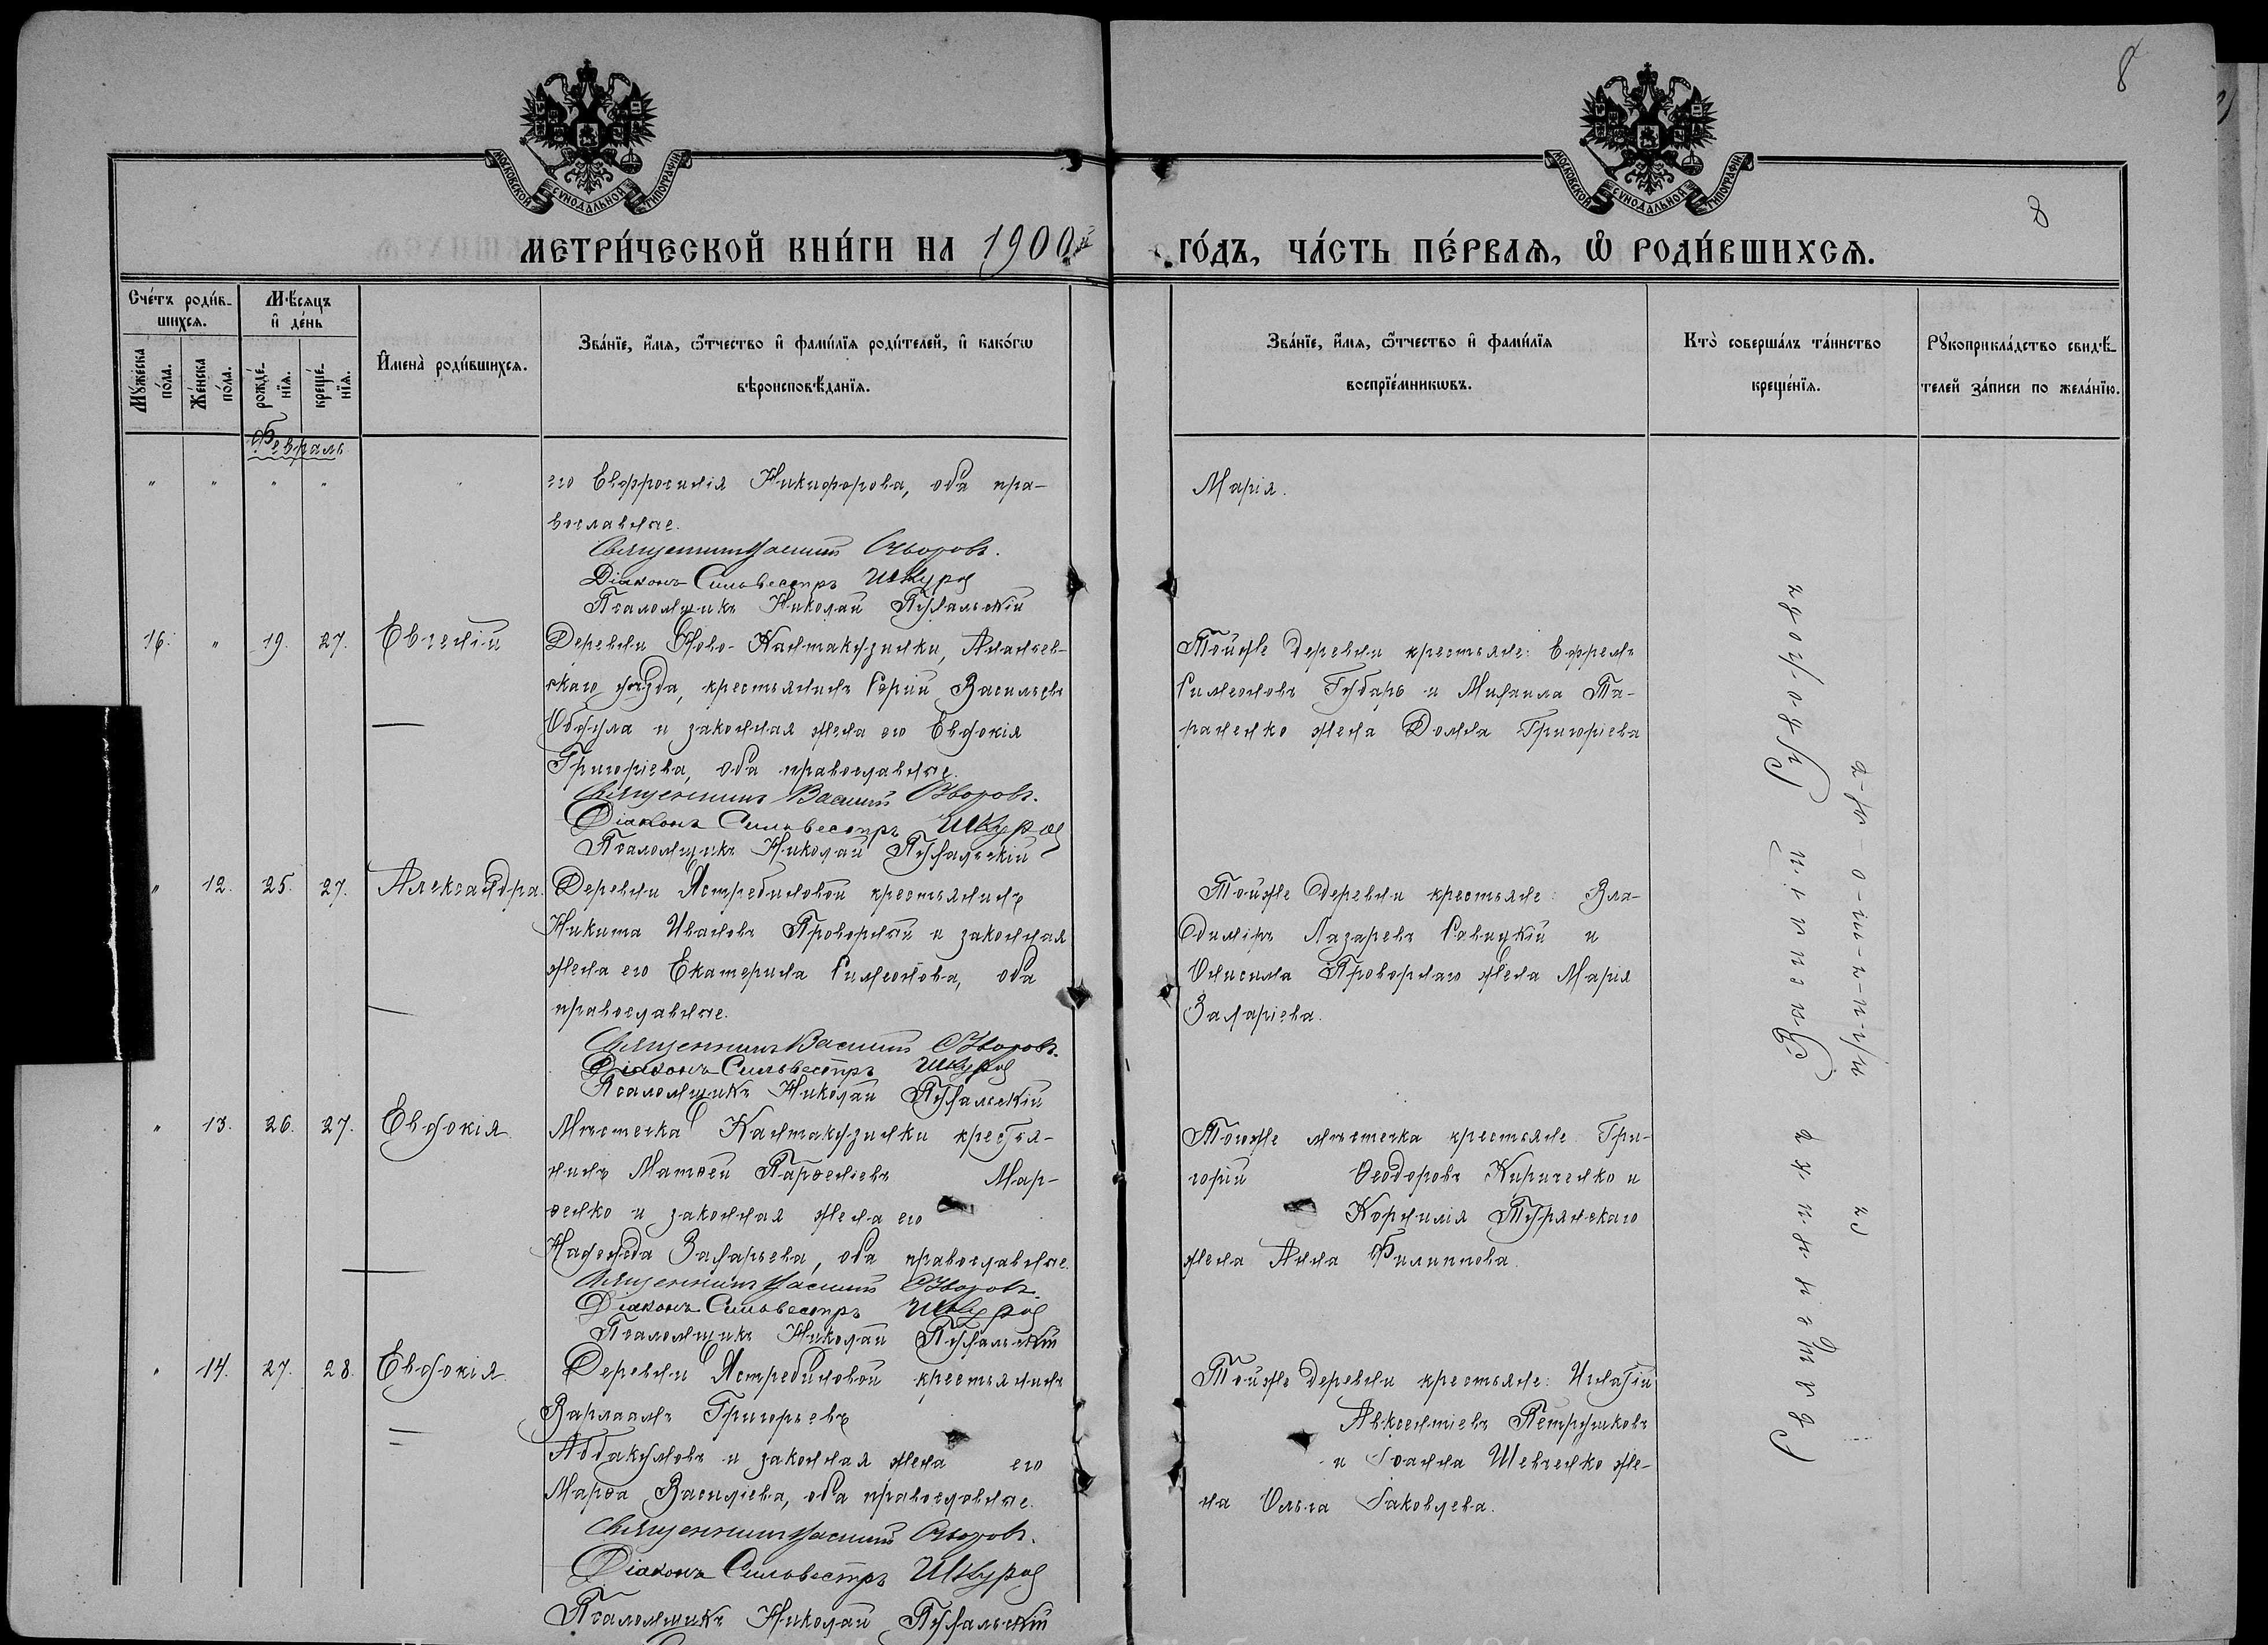 8
МОСКОВСКОЙ СѴНОДАЛЬНОЙ ТИПОГРАФІИ
МОСКОВСКОЙ СѴНОДАЛЬНОЙ ТИПОГРАФІИ
8
МЕТРИ́ЧЕСКОЙ КНИ́ГИ НА 1900й ГО́ДЪ, ЧА́СТЬ ПЕ́РВАѦ, Ѽ РОДИ́ВШИХСѦ.
Сче́тъ роди́в-
шихсѧ.
Мꙋ́жеска по́ла.
Же́нска по́ла.
Мѣ́сяцъ
и҆ де́нь
рожде́-
нїѧ.
креще́-
нїѧ.
И҆мена̀ роди́вшихсѧ.
Зва́нїе, и҆́мѧ, ѻ҆́тчество и҆ фами́лїѧ роди́телей, и҆ како́гѡ
вѣроисповѣ́данїѧ.
Зва́нїе, и҆́мѧ, ѻ҆́тчество и҆ фами́лїѧ
воспрїе́мникѡвъ.
Кто̀ соверша́лъ та́инство
креще́нїѧ.
Рꙋкоприкла́дство свидѣ́-
телей за́писи по жела́нїю.
Февраль
его Евфросинія Никифорова, оба пра-
вославные.
Священникъ Василій
Діаконъ Сильвестръ
Псаломщикъ Николай
Марія.
16. " 19. 27. Евгеній
Деревни Ново-Кантакузинки, Ананьев-
скаго уѣзда, крестьянинъ Сергій Васильевъ
и законная жена его Евдокія
Григоріева, оба православные.
Священникъ Василій
Діаконъ Сильвестръ
Псаломщикъ Николай
Тойже деревни крестьяне: Ефремъ
Симеоновъ Губарь и Михаила Та-
раненко жена Домна Григоріева
" 12. 25. 27. Александра.
Деревни Ястребиновой крестьянинъ
Никита Ивановъ Проворный и законная
жена его Екатерина Симеонова, оба
православные.
Священникъ Василій
Діаконъ Сильвестръ
Псаломщикъ Николай
Тойже деревни крестьяне: Вла-
диміръ Лазаревъ Савицкій и
Онисима Проворнаго жена Марія
Захаріева.
" 13. 26. 27. Евдокія.
Мѣстечка Кантакузинки крестья-
нинъ Матѳей Парѳеніевъ Мар-
ченко и законная жена его
Надежда Захарьева, оба православные.
Священникъ Василій
Діаконъ Сильвестръ
Псаломщикъ Николай
Тогоже мѣстечка крестьяне Гри-
горій Ѳеодоровъ Кириченко и
Корнилія Турянскаго
жена Анна Филиппова.
" 14. 27. 28. Евдокія.
Деревни Ястребиновой крестьянинъ
Варлаамъ Григорьевъ
Абакумовъ и законная жена его
Марѳа Василіева, оба православные.
Священникъ Василій
Діаконъ Сильвестръ
Псаломщикъ Николай
Тойже деревни крестьяне: Игнатій
Авксентіевъ Петрушковъ
и Іоанна Шевченко же-
на Ольга Іаковлева.
Священникъ Василій
съ